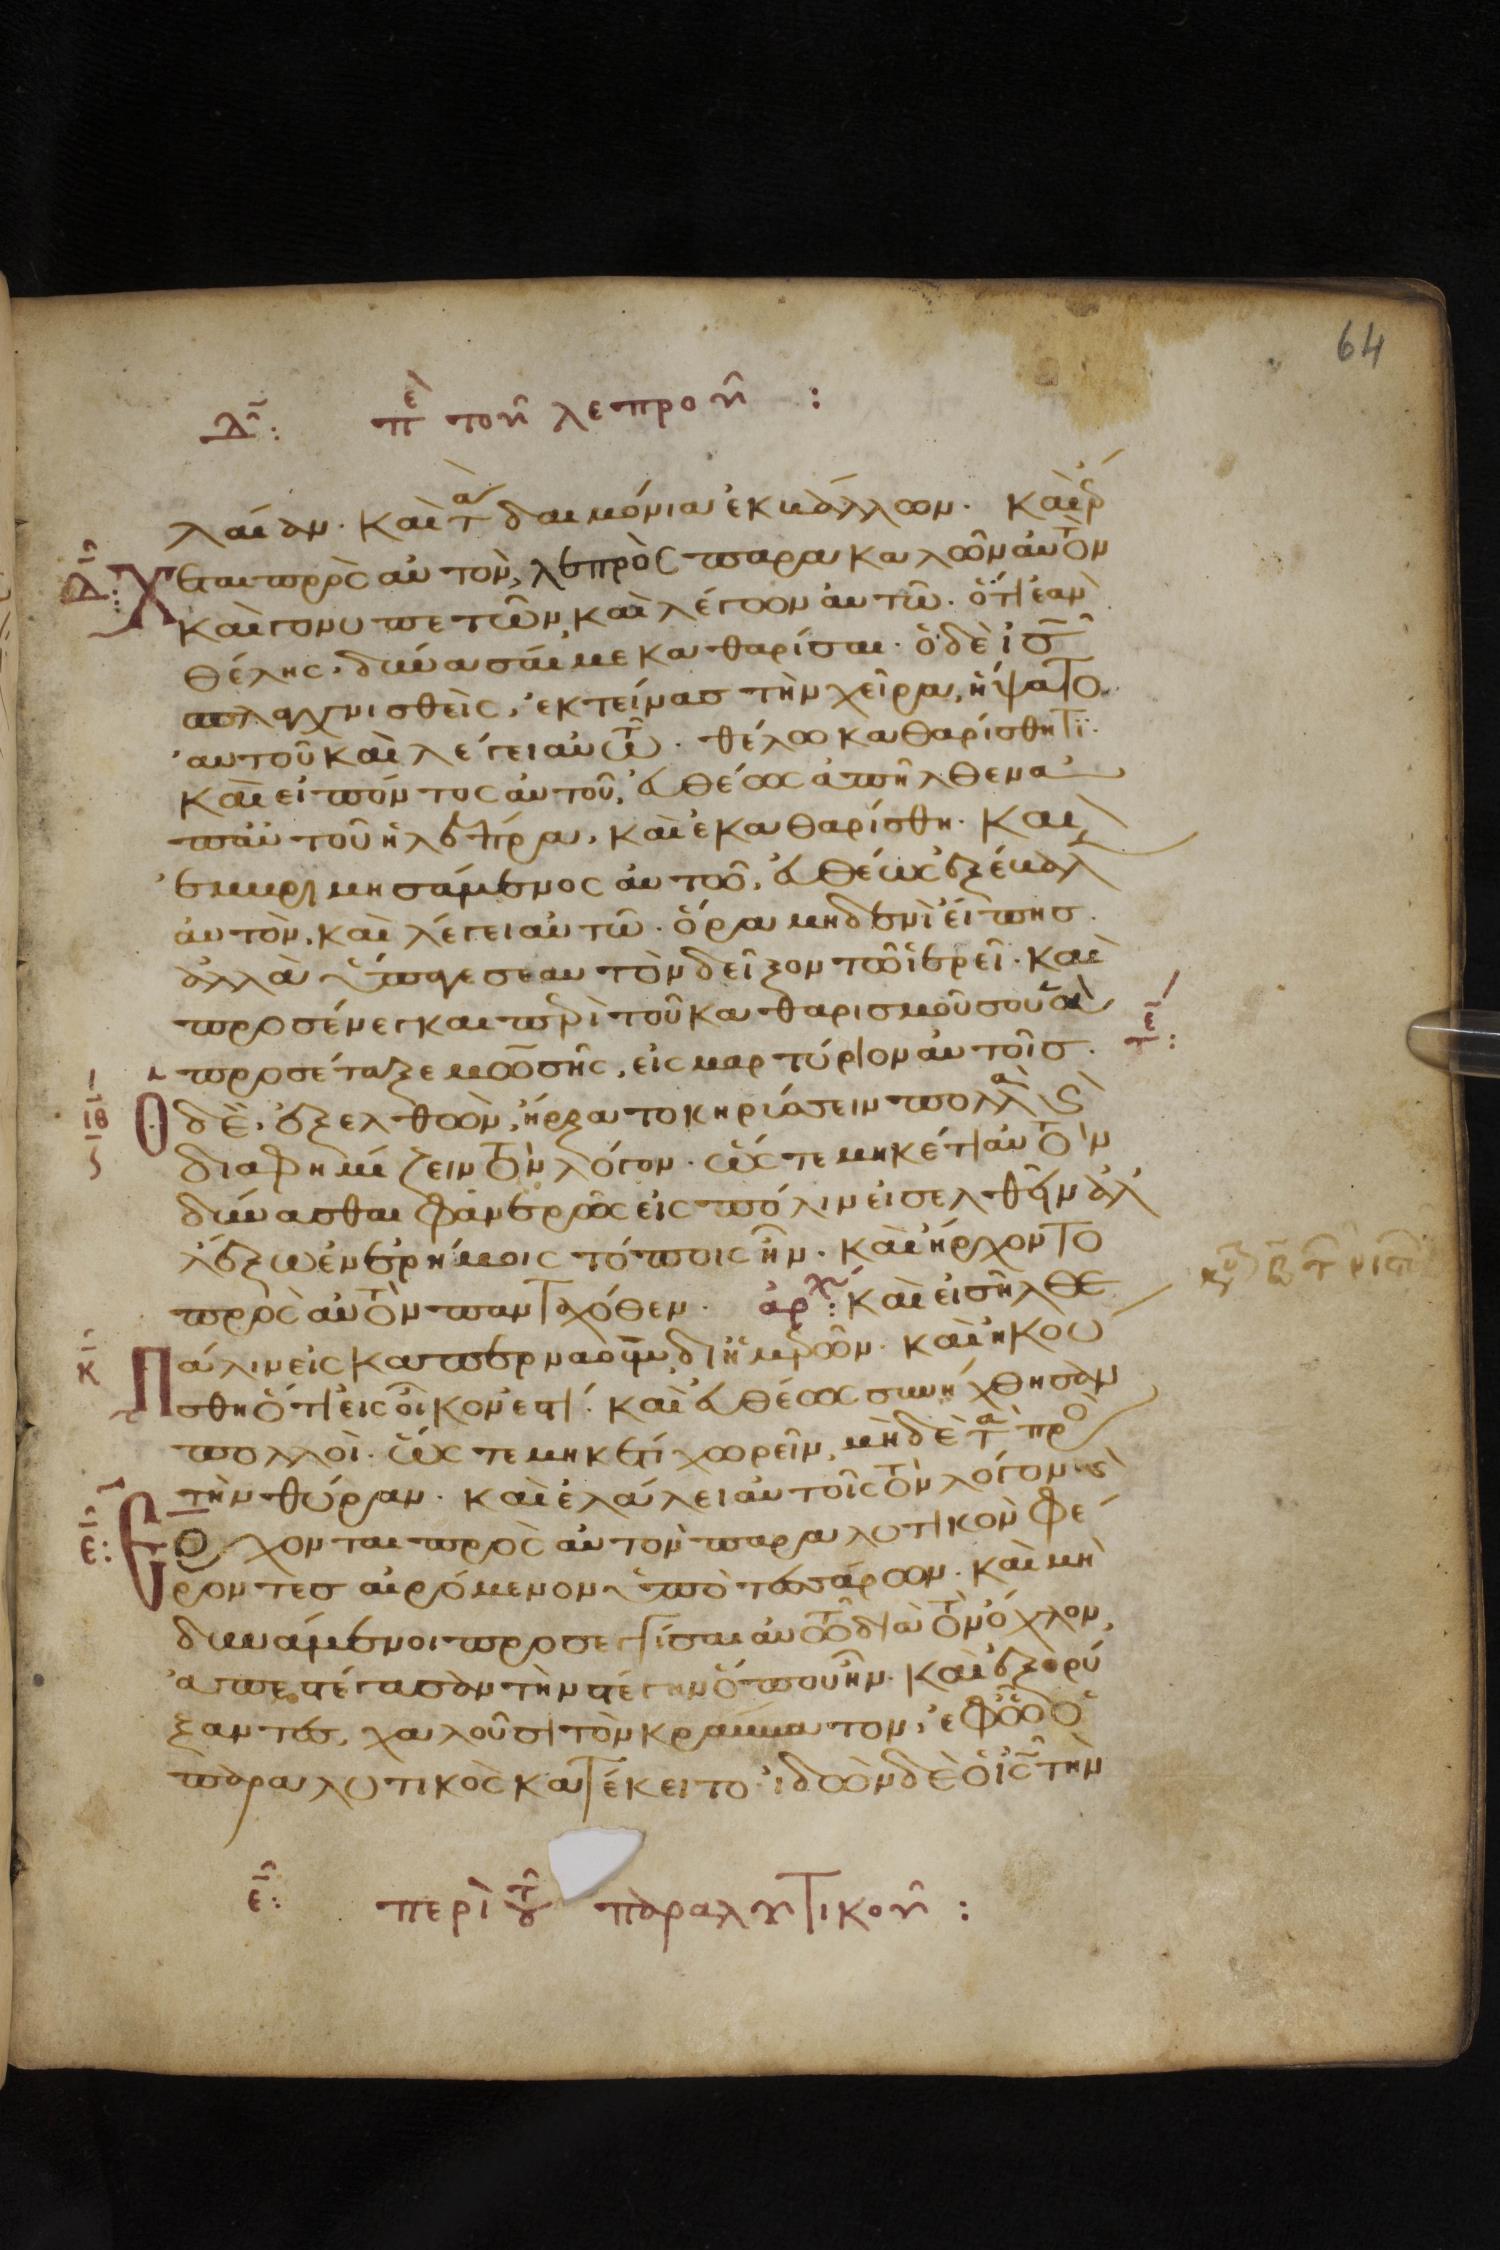 64
Δ: πε τοῦ λεπροῦ :
λαίαν. καὶ τὰ δαιμόνια ἐκβάλλων. καὶ ἔρ
Δ: χεται πρὸς αὐτὸν, λεπρὸς παρακαλῶν αὐτὸν
καὶ γονυπετῶν, καὶ λέγων αὐτῶ. ὅτι ἐὰν
θέλης, δύνασαί με καθαρίσαι. ὁ δὲ ις
σπλαγχνισθεὶς, ἐκτείνας τὴν χεῖρα, ἥψατο
αὐτοῦ καὶ λέγει αὐτῶ. θέλω καθαρίσθητι.
καὶ εἰπόντος αὐτοῦ, εὐθέως ἀπῆλθεν ἀ
π αὐτοῦ ἡ λέπρα, καὶ ἐκαθαρίσθη. καὶ
ἐμβριμησάμενος αὐτῶ, εὐθέως ἐξέβαλ
αὐτὸν, καὶ λέγει αὐτῶ. ὅρα μηδενὶ εἴπης.
ἀλλὰ ὕπαγε σεαυτὸν δεῖξον τῶ ἱερεῖ. καὶ
προσένεγκαι περὶ τοῦ καθαρισμοῦ σου ἃ
προσέταξε μωσῆς, εἰς μαρτύριον αὐτοῖς.
ὁ δὲ ἐξελθὼν, ἤρξατο κηρύσσειν πολλὰ καὶ
διαφημίζειν τὸν λόγον. ὥστε μηκέτι αὐτὸν
δύνασθαι φανερῶς εἰς πόλιν εἰσελθεῖν ἀλ
λ ἔξω ἐν ἐρήμοις τόποις ἦν. καὶ ἤρχοντο
πρὸς αὐτὸν πανταχόθεν. ἀρχ: καὶ εἰσῆλθε
πάλιν εἰς καπερναοὺμ δι ἡμερῶν. καὶ ἠκού
σθη ὅτι εἰς οἶκον ἐστί. καὶ εὐθέως συνήχθησαν
πολλοὶ. ὥστε μηκέτι χωρεῖν, μηδὲ τὰ πρὸ
τὴν θύραν. καὶ ἐλάλει αὐτοῖς τὸν λόγον. καὶ
ε: ἔρχονται πρὸς αὐτὸν παραλυτικὸν φέ
ροντες αἰρόμενον ὑπὸ τεσσάρων. καὶ μὴ
δυνάμενοι προσεγγίσαι αὐτῶ διὰ τὸν ὄχλον,
ἀπεστέγασαν τὴν στέγην ὅπου ἦν. καὶ ἐξορύ
ξαντες, χαλοῦσι τὸν κράββατον, ἐφ ὧ ὁ
παραλυτικὸς κατέκειτο. ἰδὼν δὲ ὁ ις τὴν
ε: περὶ τοῦ παραλυτικοῦ :